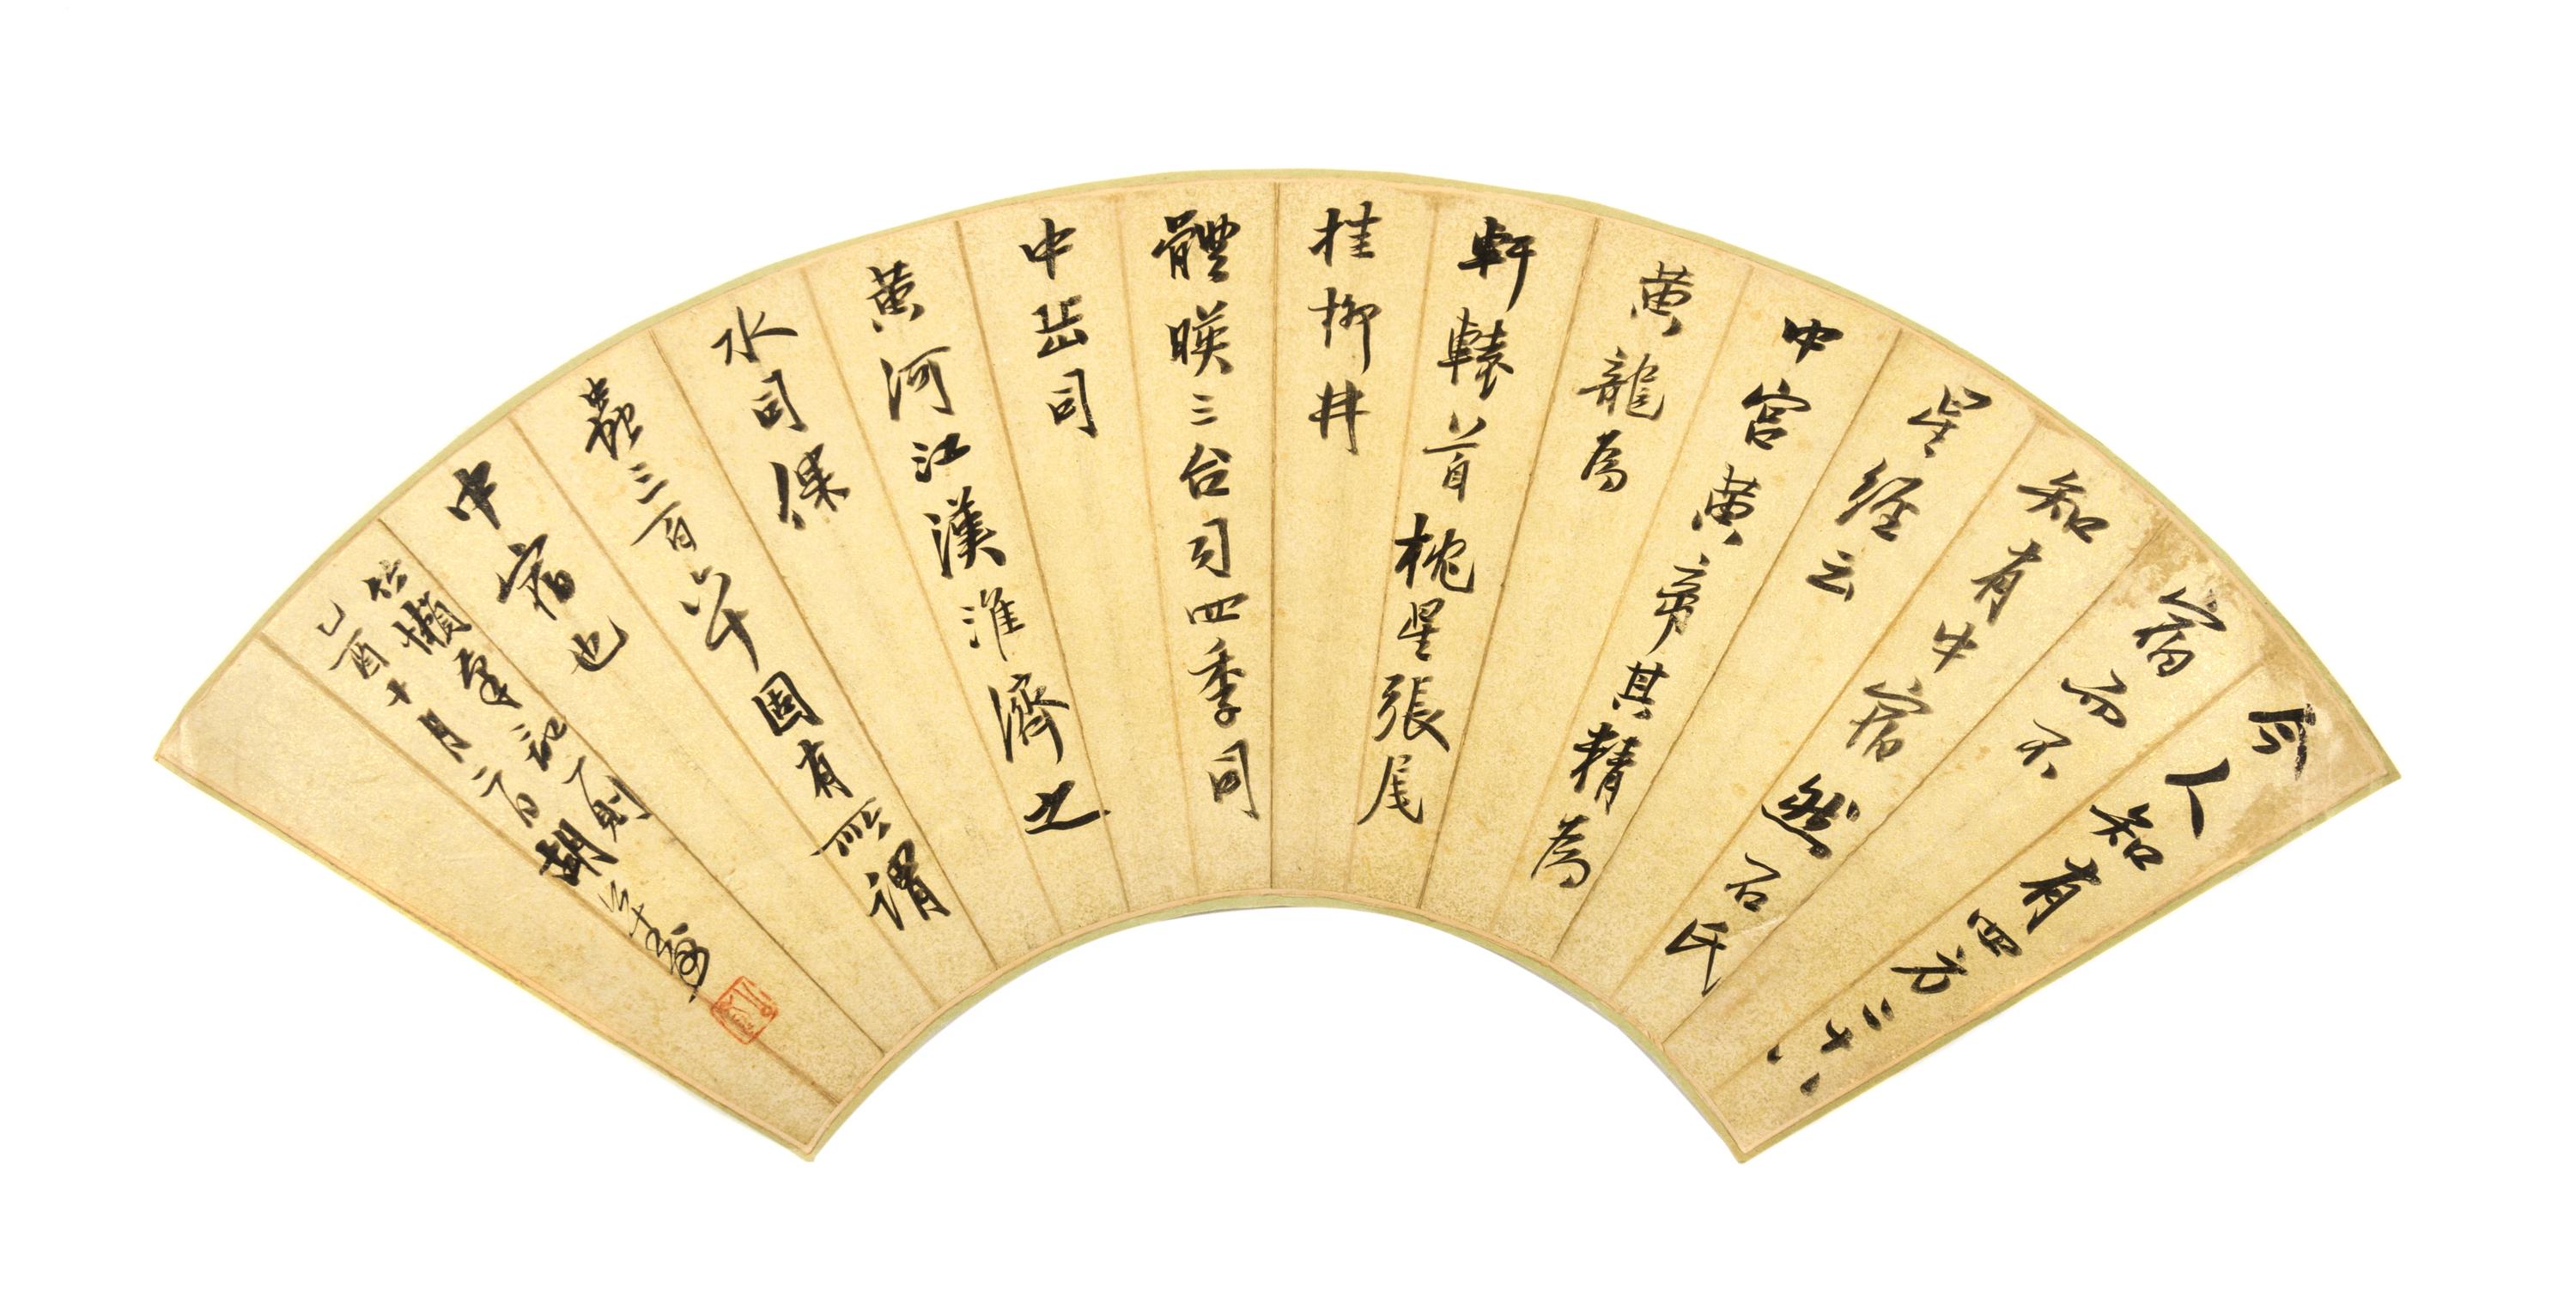 今人知有四方二十八
宿而不
知有中宿然石氏
星經云
中宮黃帝其精為
黃龍為
軒轅首枕星張尾
挂柳井
體暎三台司四季司
中岳司
黃河江漢淮濟之
水司倮
蟲三百六十固有所謂
中宿也
竹懶筆記一則
乙酉十月一日胡